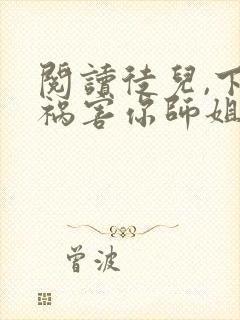 閱讀徒兒,下
禍害你師姐
曾波